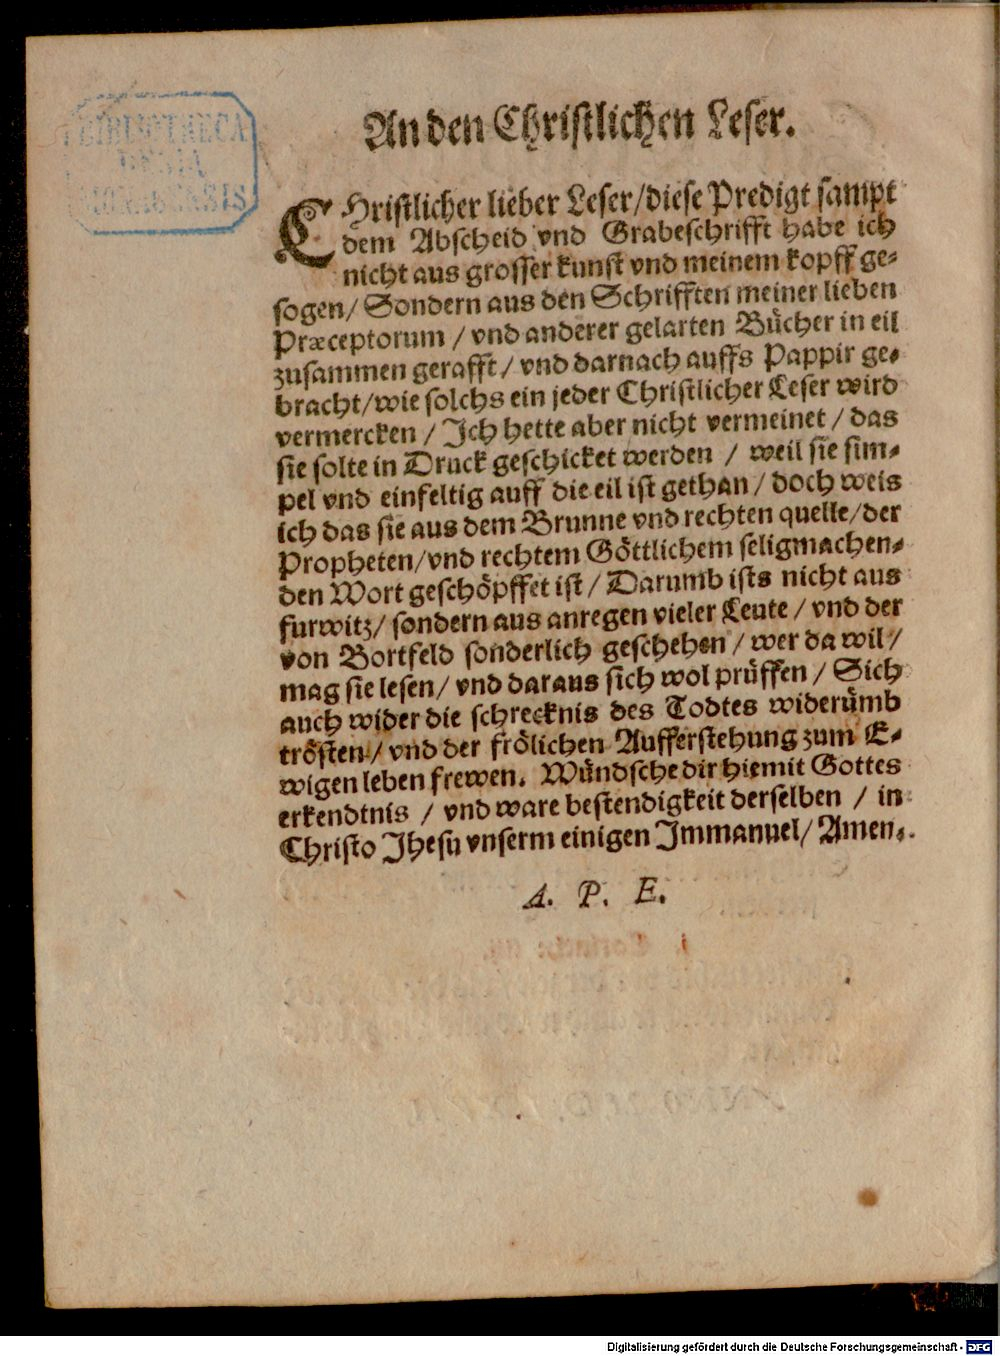 BIBLIOTHECA
REGIA
MONACENSIS
An den Christlichen Leser.
CHristlicher lieber Leser/diese Predigt sampt
dem Abscheid vnd Grabeschrifft habe ich
nicht aus grosser kunst vnd meinem kopff ge-
sogen/ Sondern aus den Schrifften meiner lieben
Præceptorum / vnd anderer gelarten Bücher in eil
zusammen gerafft/ vnd darnach auffs Pappir ge-
bracht/wie solchs ein jeder Christlicher Leser wird
vermercken / Ich hette aber nicht vermeinet / das
sie solte in Druck geschicket werden / weil sie sim-
pel vnd einfeltig auff die eil ist gethan / doch weis
ich das sie aus dem Brunne vnd rechten quelle/der
Propheten/vnd rechtem Göttlichem seligmachen-
den Wort geschöpffet ist/ Darumb ists nicht aus
furwitz/ sondern aus anregen vieler Leute / vnd der
von Bortfeld sonderlich geschehen / wer da wil/
mag sie lesen/ vnd daraus sich wol prüffen / Sich
auch wider die schrecknis des Todtes widerümb
trösten / vnd der frölichen Aufferstehung zum E-
wigen leben frewen. Wündsche dir hiemit Gottes
erkendtnis / vnd ware bestendigkeit derselben / in
Christo Jhesu vnserm einigen Immanuel/ Amen.
A. P. E.
Digitalisierung gefördert durch die Deutsche Forschungsgemeinschaft - DFG